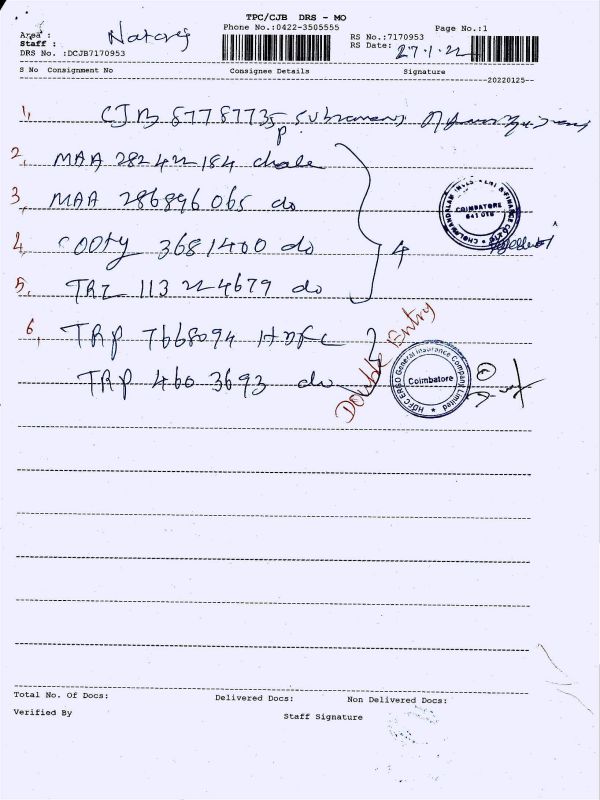 TPC/CJB DRS - MO
Phone No.:0422-3505555
Page No.:1
Area :
Staff :
DRS No. :DCJB7170953
RS No.:7170953
RS Date: 27.1.22
S No Consignment No Consignee Details Signature
20220125
1,
2, MAA 282422184 chola
3, MAA 286896065 do
4, OOTY 3681400 do
4
5, TRZ 113224679 do
6, TRP 7668094 HDFC
TRP 460 3693 do
Double Entry
COIMBATORE
641 018
HDFC ERGO General Insurance Company Limited
Coimbatore
Total No. Of Docs: Delivered Docs: Non Delivered Docs:
Verified By
Staff Signature